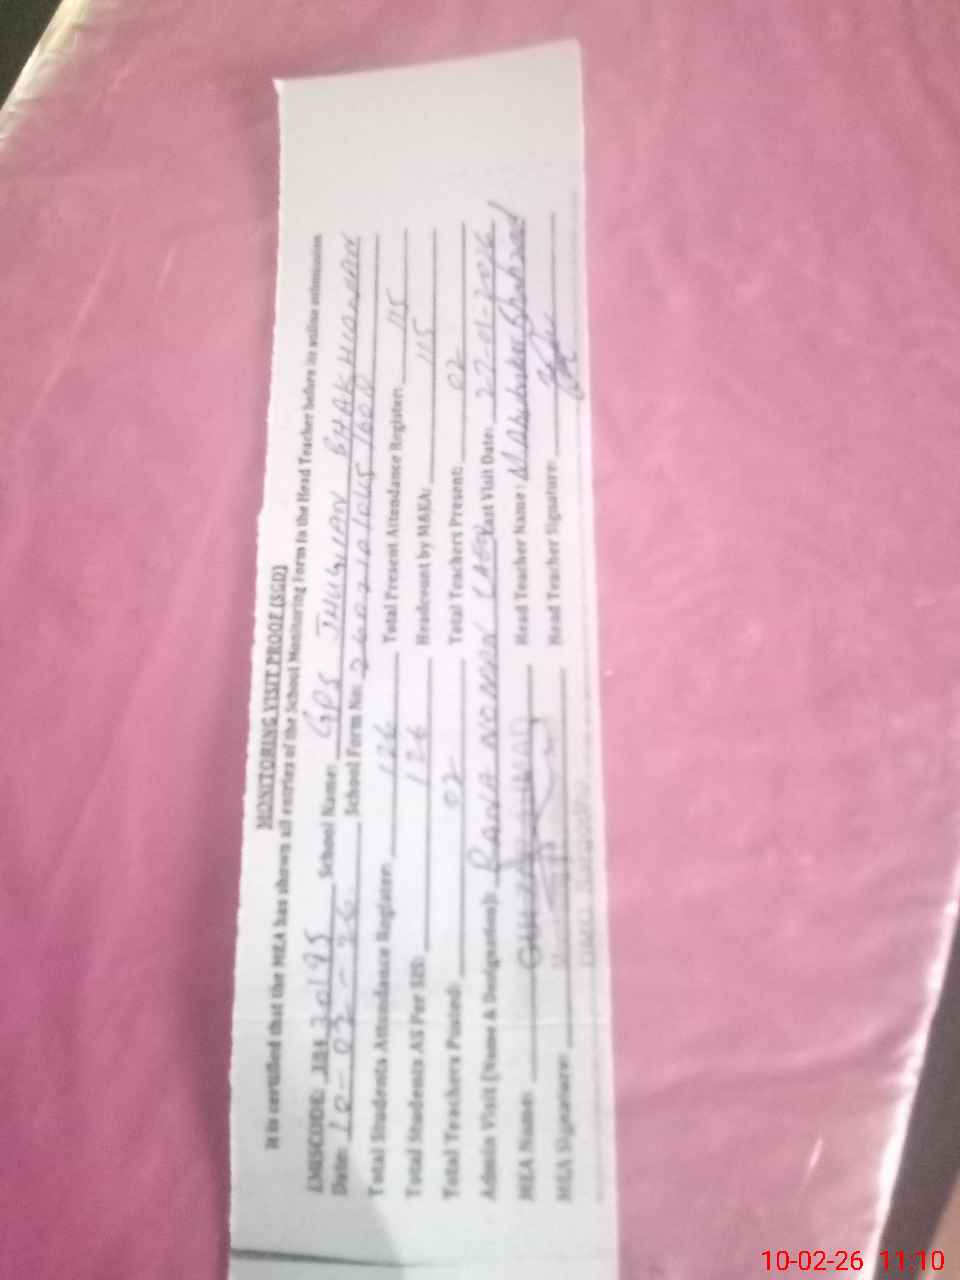 MONITORING VISIT PROOF (SGD)
It is certified that the MEA has shown all entries of the School Monitoring Form to the Head Teacher before its online submission
EMISCODE: School Name: GPS JHUGIAN BHAKHUANAN
Date: 10-02-26 School Form No:
Total Students Attendance Register: 126 Total Present Attendance Register: 115
Total Students AS Per SIS: 126 Headcount by M&EA: 115
Total Teachers Posted: 02 Total Teachers Present: 02
Admin Visit (Name & Designation): RANA NOMAN (AEO) Last Visit Date: 27-01-2026
MEA Name: Head Teacher Name:
MEA Signature: Head Teacher Signature:
10-02-26 11:10